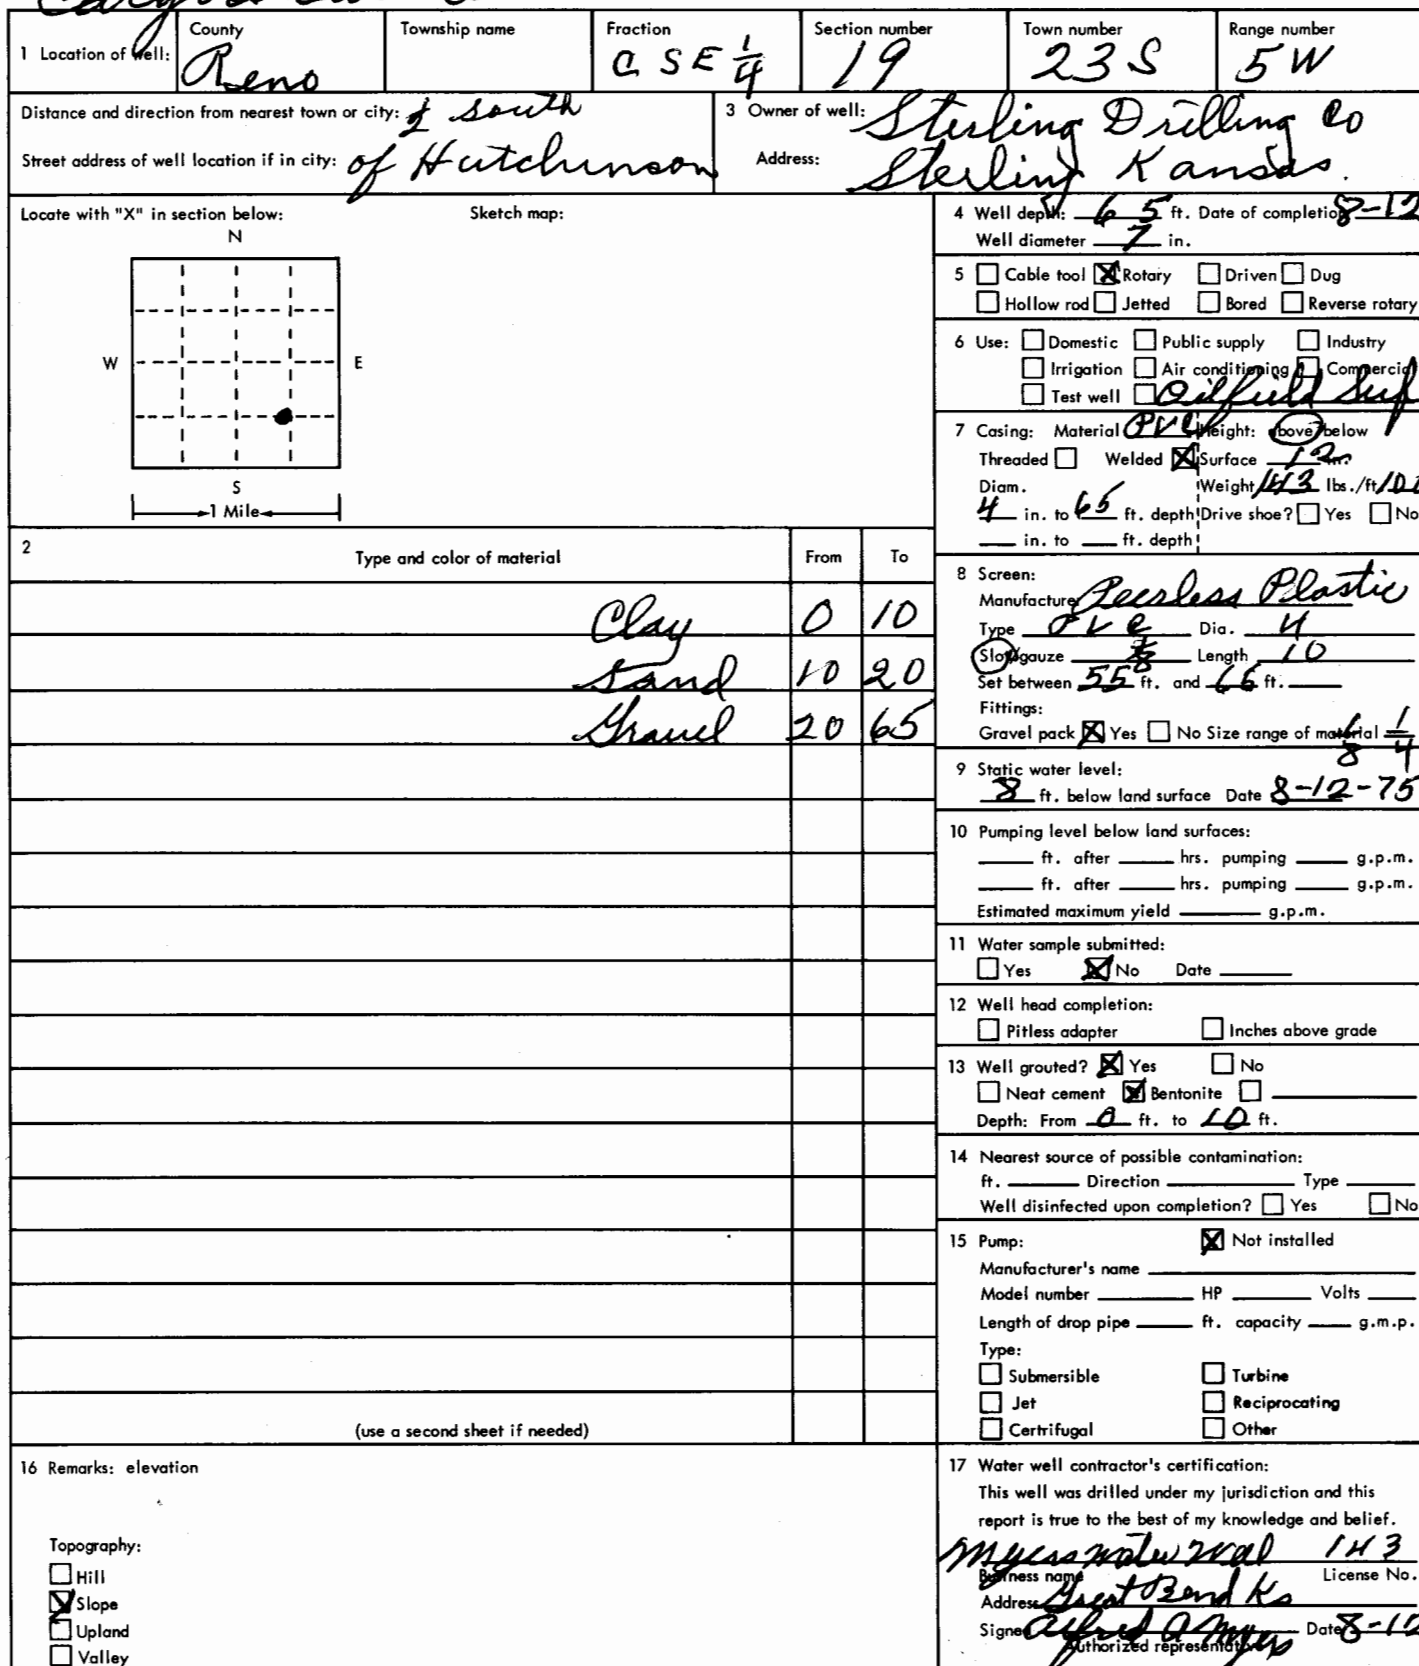 1 Location of well:
County
Reno
Township name
Fraction
C SE 1/4
Section number
19
Town number
23 S
Range number
5 W
Distance and direction from nearest town or city: south
Street address of well location if in city: of Hutchinson
3 Owner of well: Sterling Drilling Co
Address: Sterling Kansas.
Locate with "X" in section below:
Sketch map:
N
W
E
S
1 Mile
4 Well depth: 65 ft. Date of completion 8-12
Well diameter 7 in.
5 Cable tool Rotary Driven Dug
Hollow rod Jetted Bored Reverse rotary
6 Use: Domestic Public supply Industry
Irrigation Air conditioning Commercial
Test well Oilfield Sup
7 Casing: Material PVC Height: above/below
Threaded Welded Surface 12 in.
Diam. Weight 143 lbs./ft
4 in. to 65 ft. depth Drive shoe? Yes No
in. to ft. depth
2
Type and color of material
From
To
Clay 0 10
Sand 10 20
Gravel 20 65
(use a second sheet if needed)
8 Screen:
Manufacture Peerless Plastic
Type PVC Dia. 4
Slot/gauze Length 10
Set between 55 ft. and 65 ft.
Fittings:
Gravel pack Yes No Size range of material 1/8 1/4
9 Static water level:
8 ft. below land surface Date 8-12-75
10 Pumping level below land surfaces:
ft. after hrs. pumping g.p.m.
ft. after hrs. pumping g.p.m.
Estimated maximum yield g.p.m.
11 Water sample submitted:
Yes No Date
12 Well head completion:
Pitless adapter Inches above grade
13 Well grouted? Yes No
Neat cement Bentonite
Depth: From 0 ft. to 10 ft.
14 Nearest source of possible contamination:
ft. Direction Type
Well disinfected upon completion? Yes No
15 Pump: Not installed
Manufacturer's name
Model number HP Volts
Length of drop pipe ft. capacity g.m.p.
Type:
Submersible Turbine
Jet Reciprocating
Certrifugal Other
16 Remarks: elevation
Topography:
Hill
Slope
Upland
Valley
17 Water well contractor's certification:
This well was drilled under my jurisdiction and this
report is true to the best of my knowledge and belief.
Myers water well 143
Business name License No.
Address Great Bend Ks
Signed Alfred A Myers Date 8-12
Authorized representative